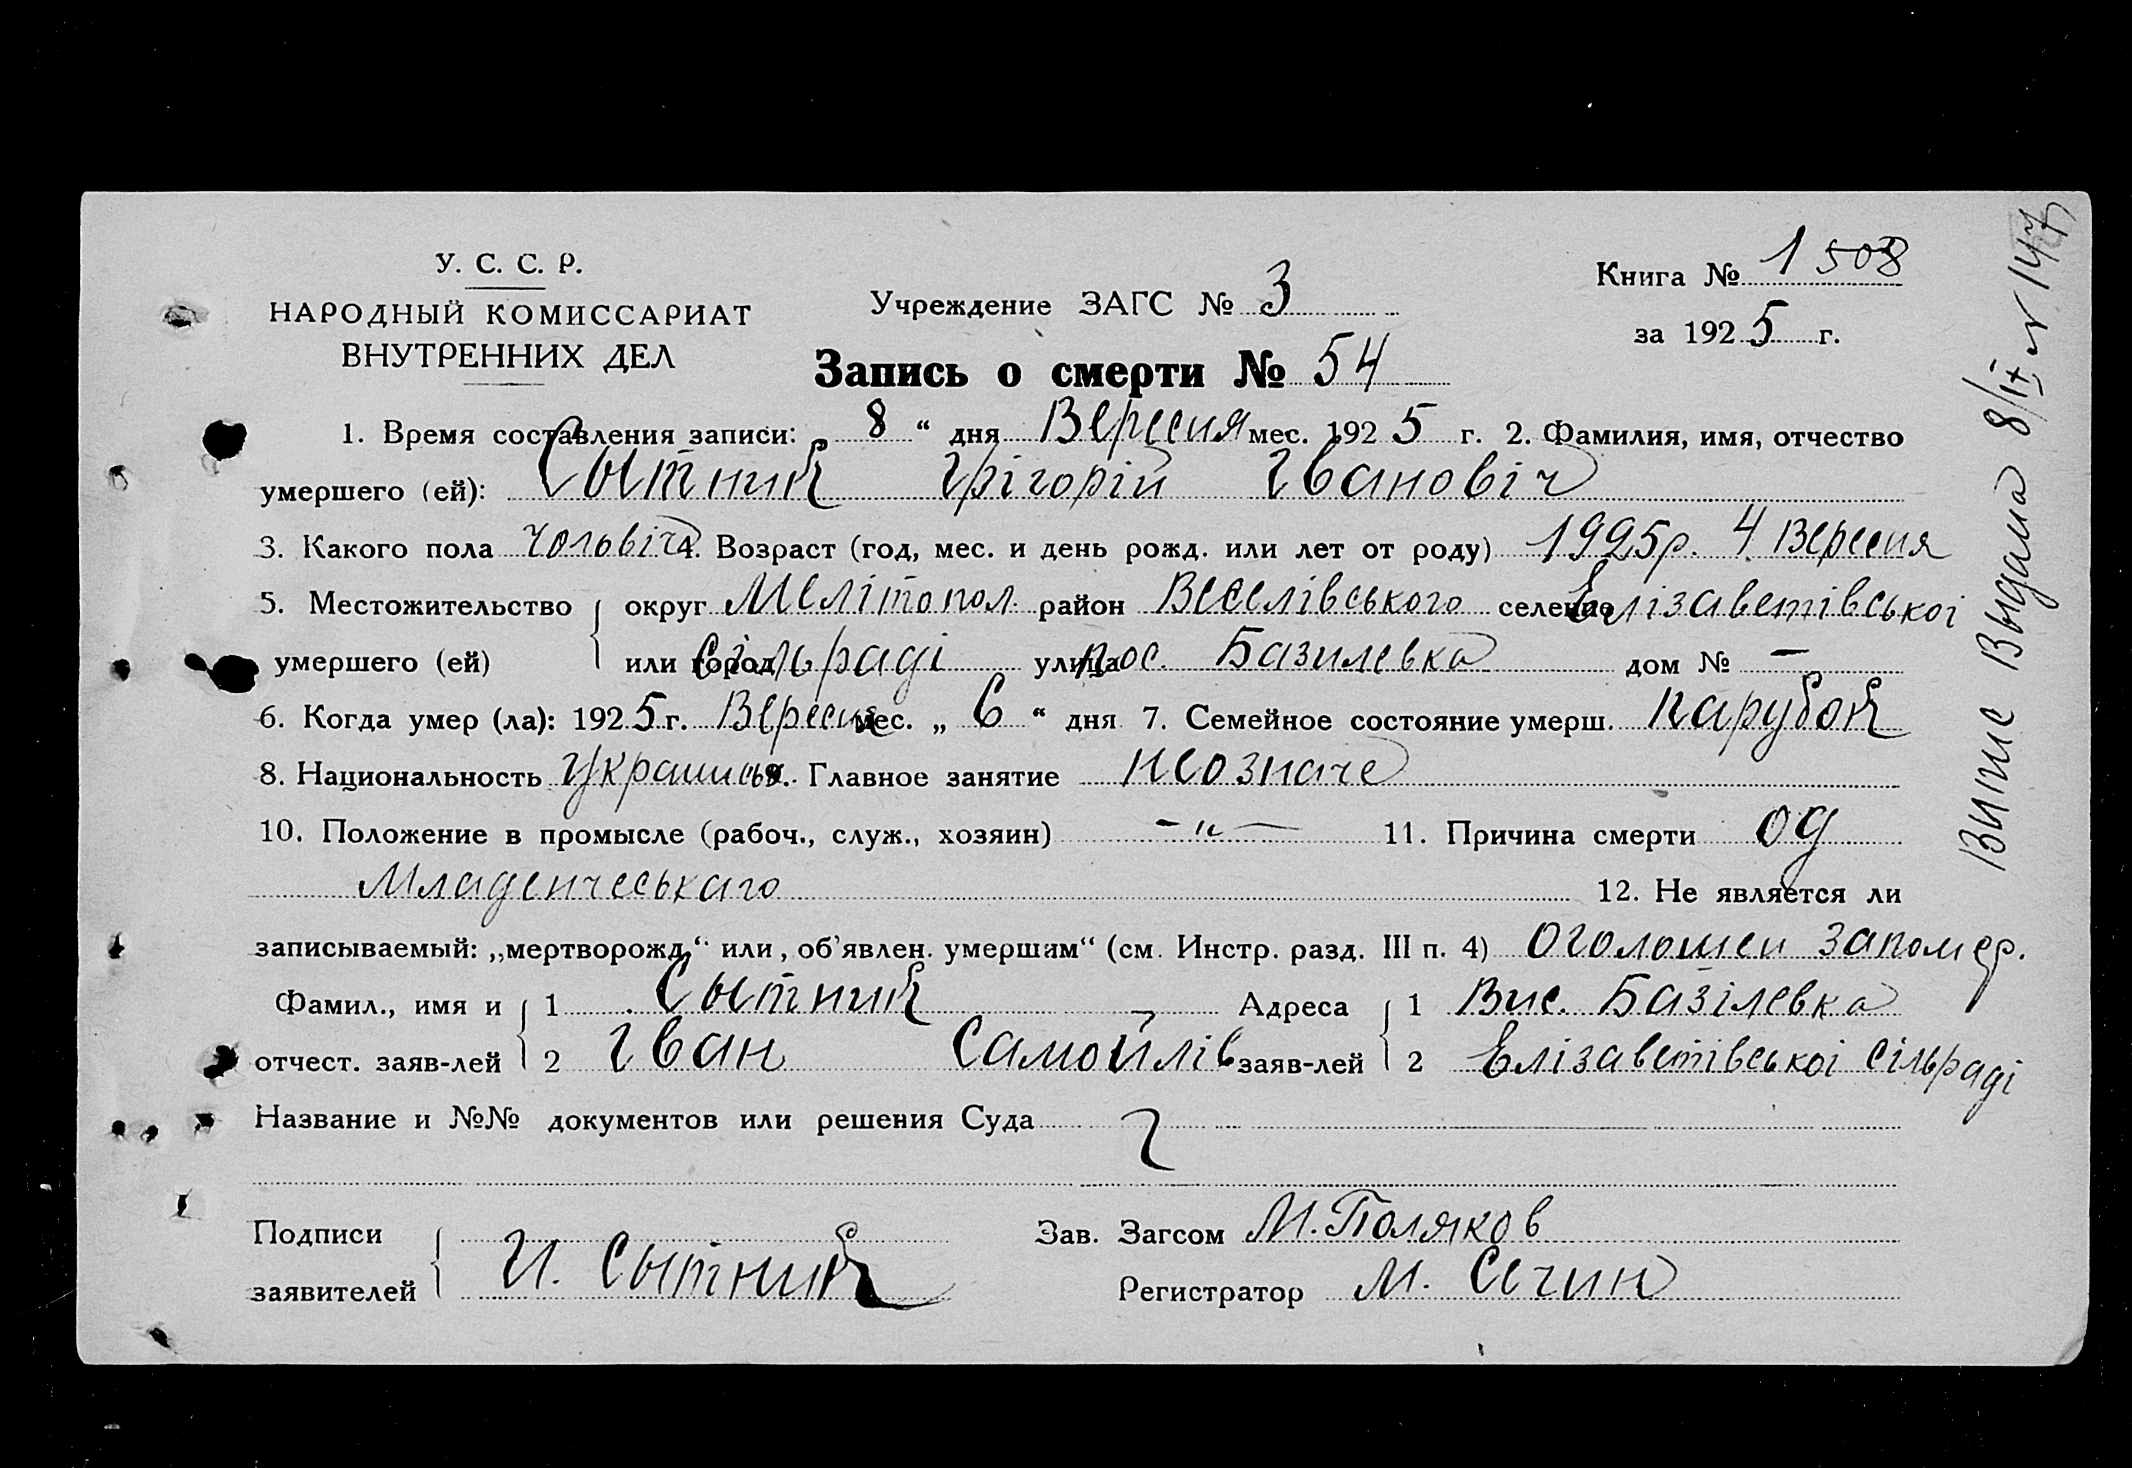 У. С. С. Р.
НАРОДНЫЙ КОМИССАРИАТ
ВНУТРЕННИХ ДЕЛ
Учреждение ЗАГС № 3
Книга № 1 508
за 1925 г.
Запись о смерти № 54
1. Время составления записи: „ 8 “ дня Вересня мес. 1925 г. 2. Фамилия, имя, отчество
умершего (ей): Сытник Грігорій Іванович
3. Какого пола чоловіча 4. Возраст (год, мес. и день рожд. или лет от роду) 1925р. 4 Вересня
5. Местожительство округ Мелітопол. район Веселівського селение Елізаветівськоі
умершего (ей) или город сільраді улица пос. Базилевка дом № —
6. Когда умер (ла): 1925 г. Вересня мес. „ 6 “ дня 7. Семейное состояние умерш. парубок
8. Национальность Украинськ. Главное занятие неозначе
10. Положение в промысле (рабоч., служ., хозяин) — „ — 11. Причина смерти од
Младенчеськаго
12. Не является ли
записываемый: „мертворожд.“ или „об'явлен. умершим“ (см. Инстр. разд. III п. 4) оголошен запомер.
Фамил., имя и 1 Сытник Адреса 1 Вис. Базілевка
отчест. заяв-лей 2 Іван Самойлів заяв-лей 2 Елізаветівськоі сільраді
Название и №№ документов или решения Суда
Подписи
заявителей И. Сытник
Зав. Загсом М. Поляков
Регистратор М. Сечин
Випис Выдана 8/ІХ № 147